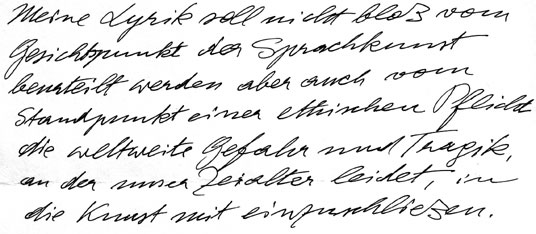 Meine Lyrik soll nicht bloß vom
Gesichtspunkt der Sprachkunst
beurteilt werden aber auch vom
Standpunkt einer ethischen Pflicht
die weltweite Gefahr und Tragik,
an der unser Zeialter leidet, in
die Kunst mit einzuschließen.